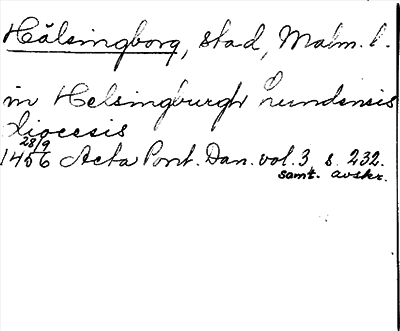 Hälsingborg, stad, Malm. l.
in Helsingburgh Lundensis
diocesis
28/9
1456 Acta Pont. Dan. vol. 3 s. 232.
samt. avskr.